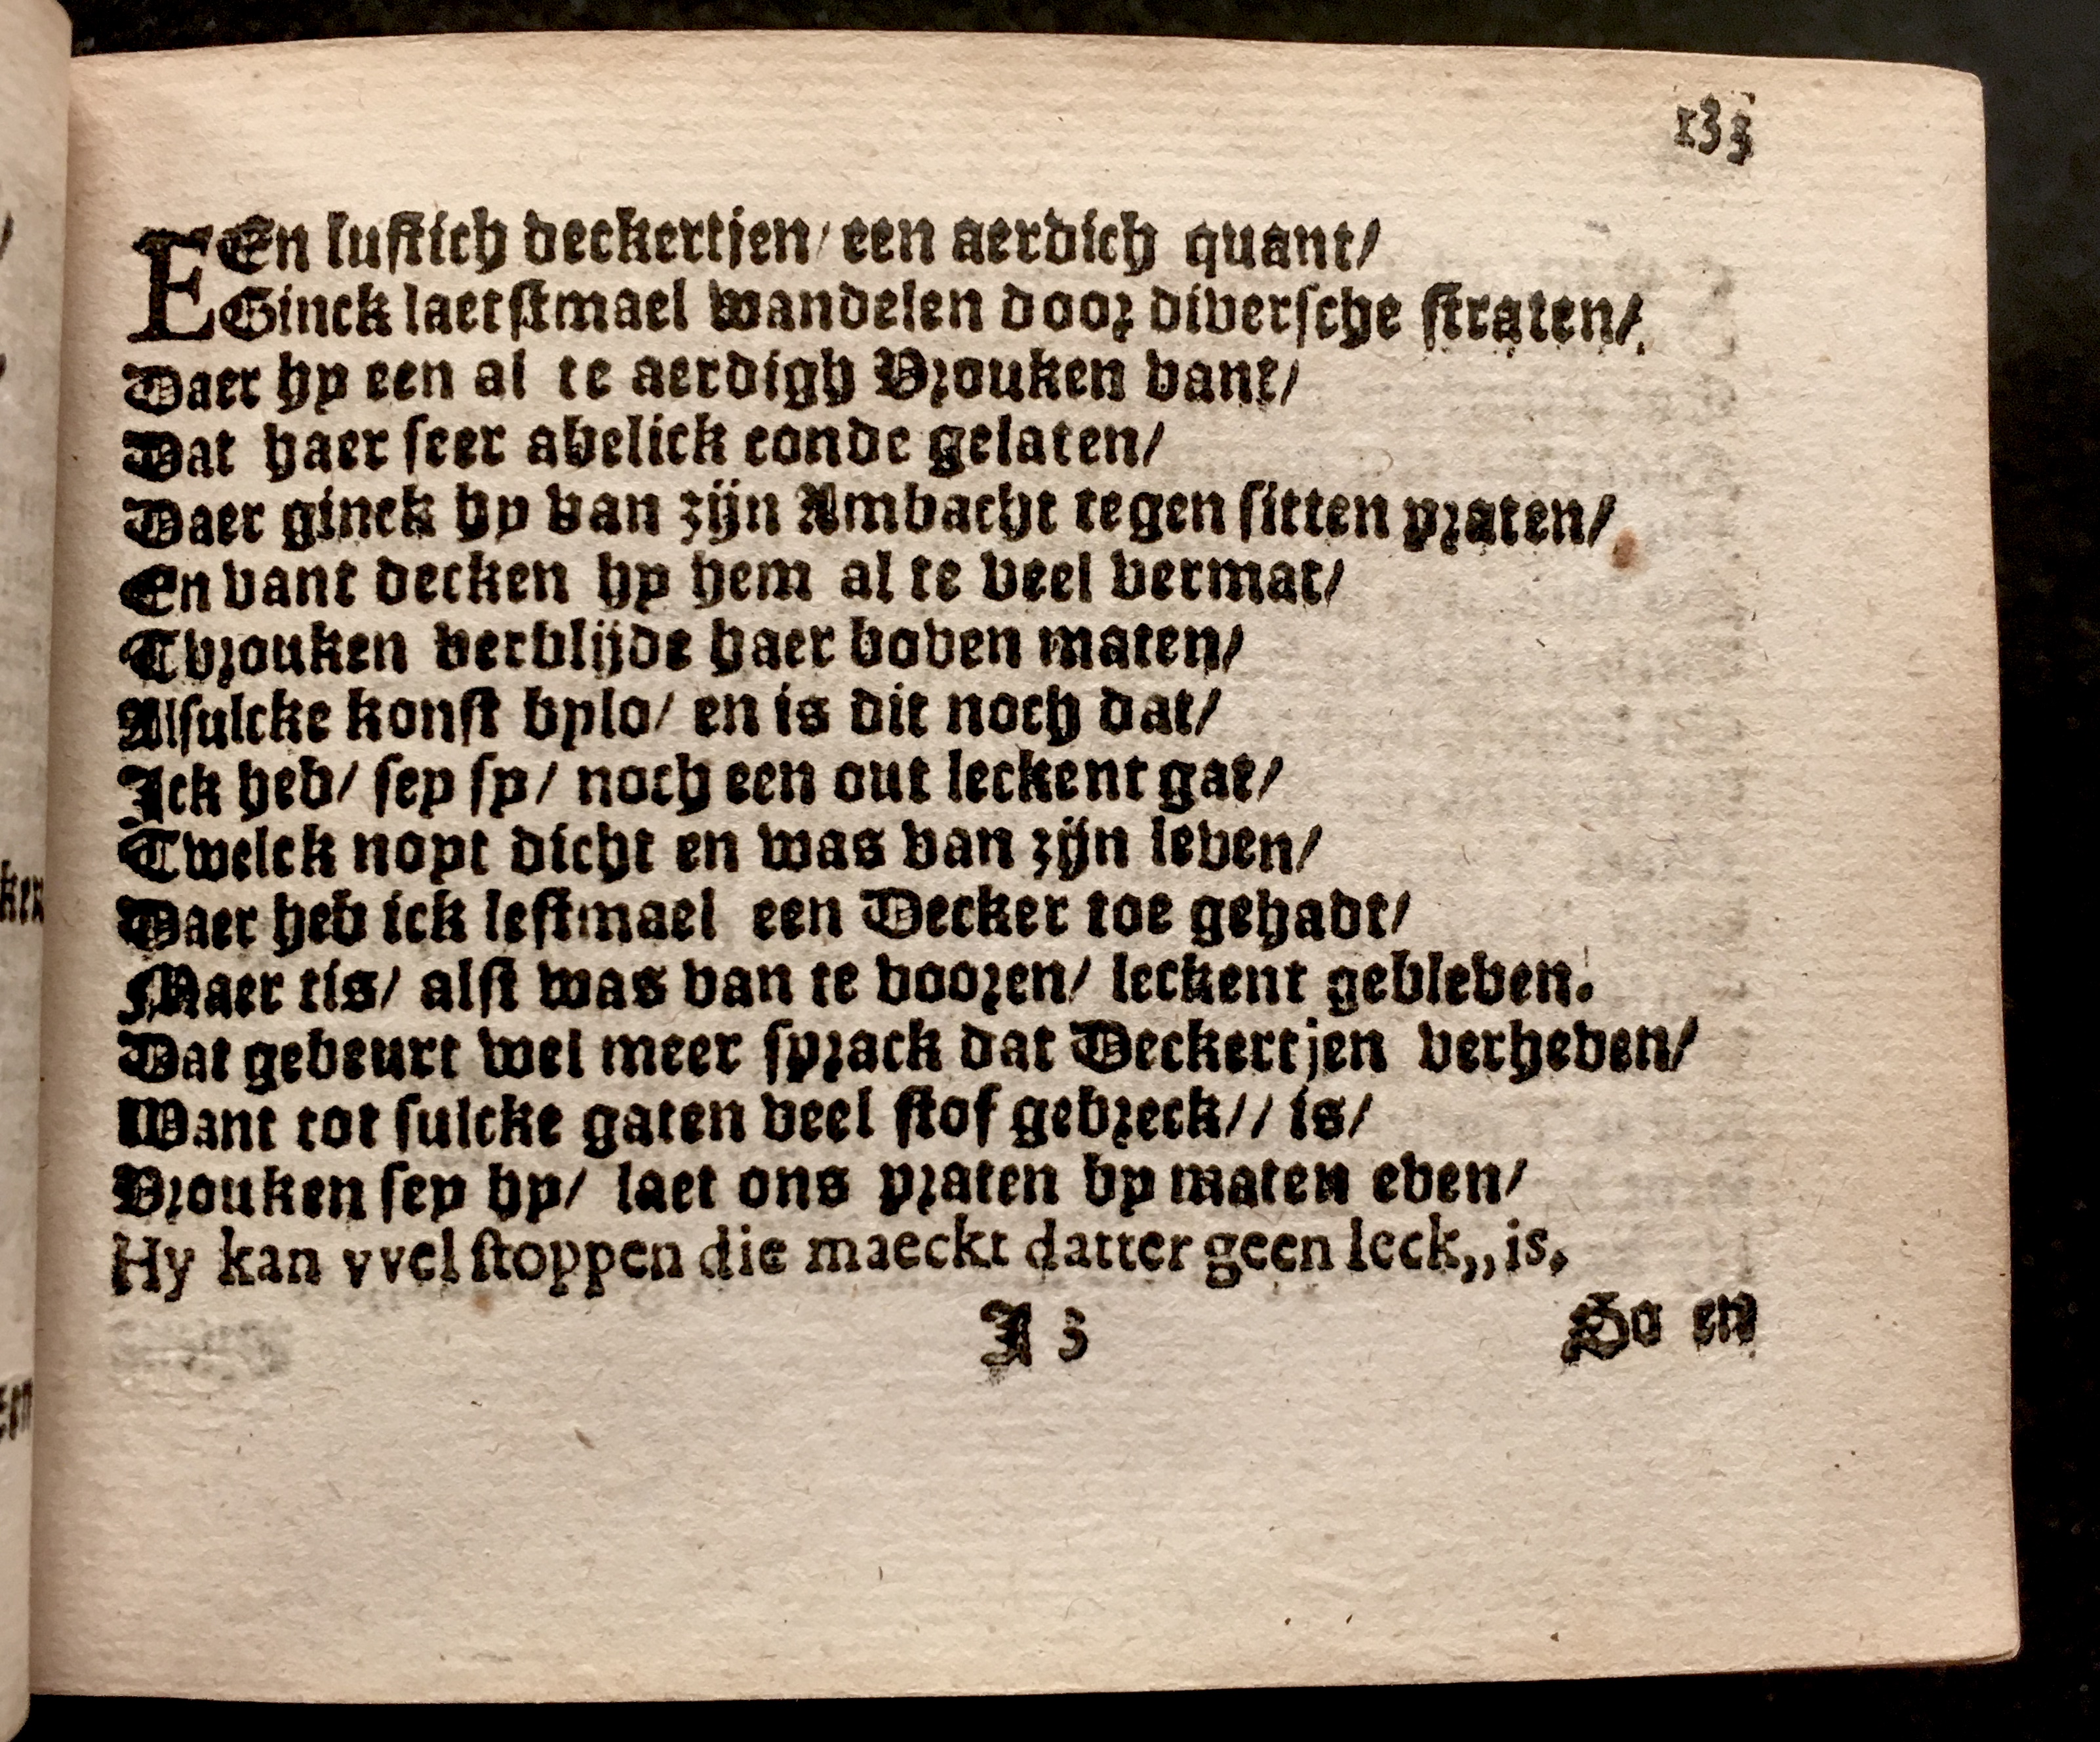 133
EEn lustich deckertjen/ een aerdich quant/
Ginck laetstmael wandelen door diversche straten/
Daer hy een al te aerdigh Vrouken vant/
Dat haer seer abelick conde gelaten/
Daer ginck hy van zijn Ambacht tegen sitten praten/
En vant decken hy hem al te veel vermat/
Tvrouken verblijde haer boven maten/
Alsulcke konst bylo/ en is dit noch dat/
Ick heb/ sey sy/ noch een out leckent gat/
Twelck noyt dicht en was van zijn leven/
Daer heb ick lestmael een Decker toe gehadt/
Maer tis/ alst was van te vooren/ leckent gebleven.
Dat gebeurt wel meer sprack dat Deckertjen verheven/
Want tot sulcke gaten veel stof gebreck// is/
Vrouken sey hy/ laet ons praten by maten even/
Hy kan vvel stoppen die maeckt datter geen leck,, is.
I 3 So en
ken